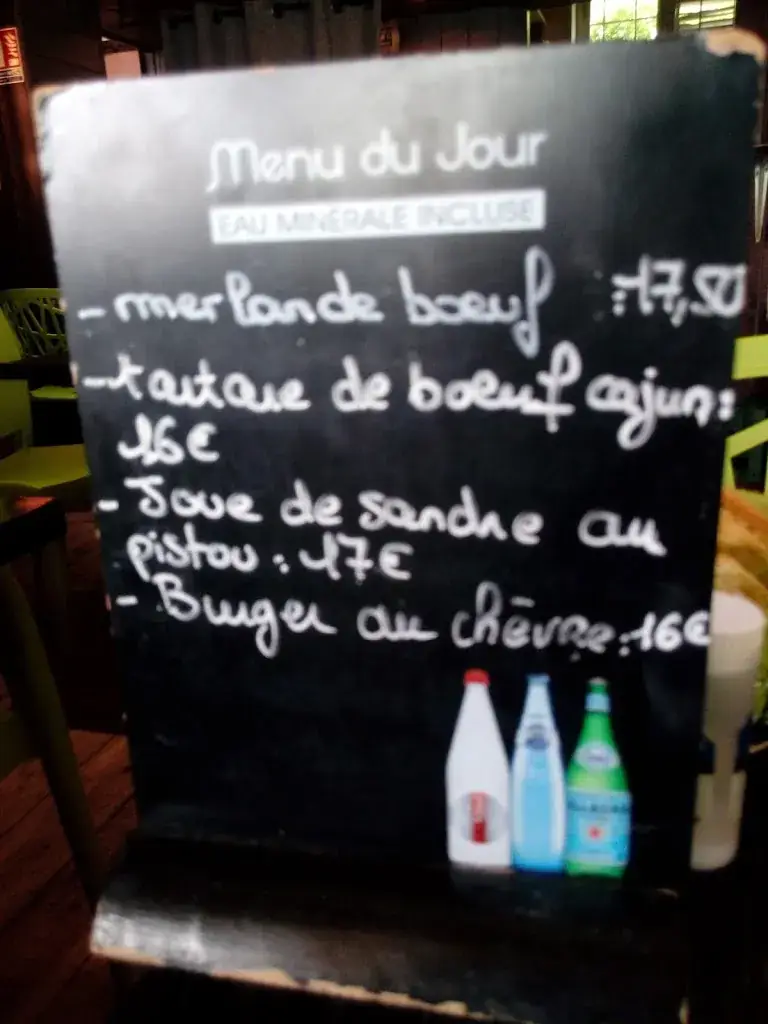 Menu du Jour
EAU MINERALE INCLUSE
- merlan de boeuf :17,50
- tartare de boeuf cajun:
16€
- Joue de sandre au
pistou: 17€
- Burger au chèvre:16€